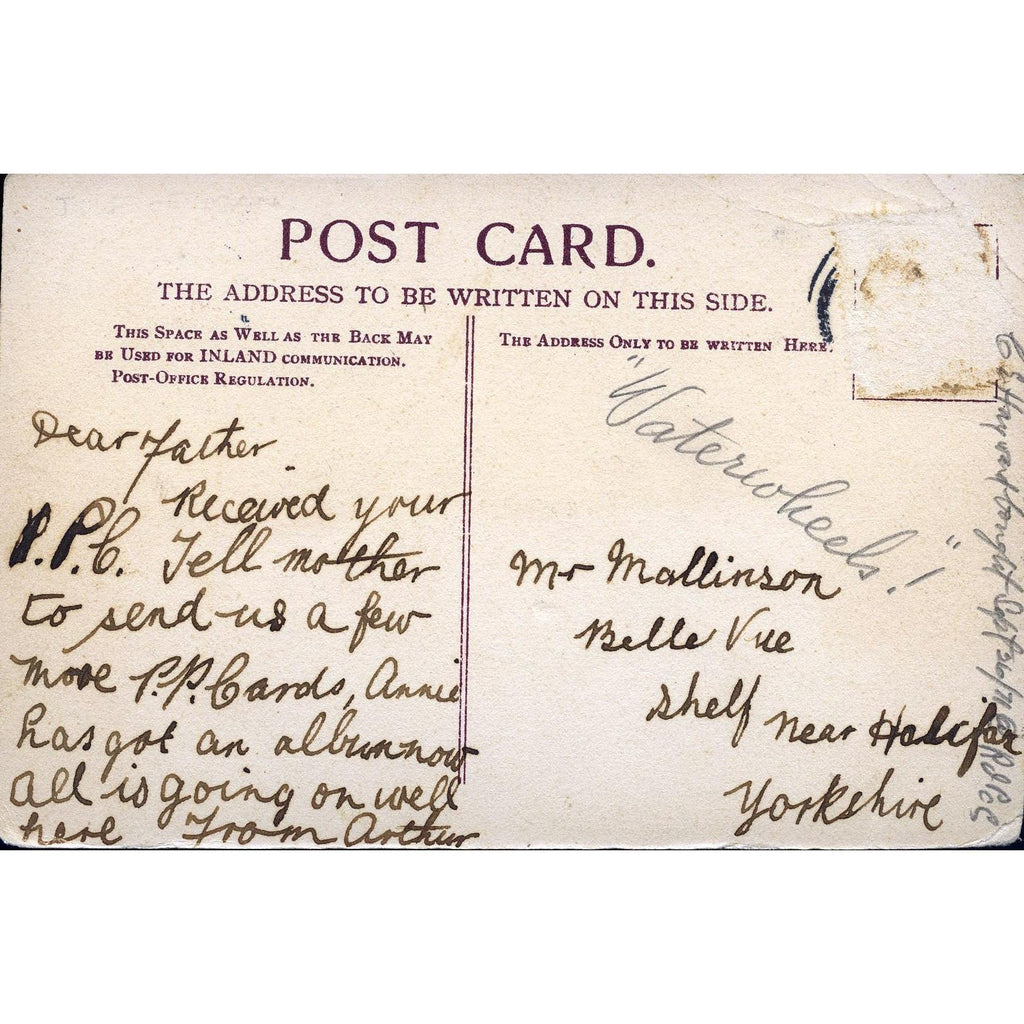 POST CARD.
THE ADDRESS TO BE WRITTEN ON THIS SIDE.
THIS SPACE AS WELL AS THE BACK MAY
BE USED FOR INLAND COMMUNICATION.
POST-OFFICE REGULATION.
THE ADDRESS ONLY TO BE WRITTEN HERE.
Dear Father
Received your
P.P.C. Tell mother
to send us a few
more P.P. Cards, Annie
has got an album now
all is going on well
here From Arthur
"Waterwheels!"
Mr Mallinson
Belle Vue
Shelf near Halifax
Yorkshire